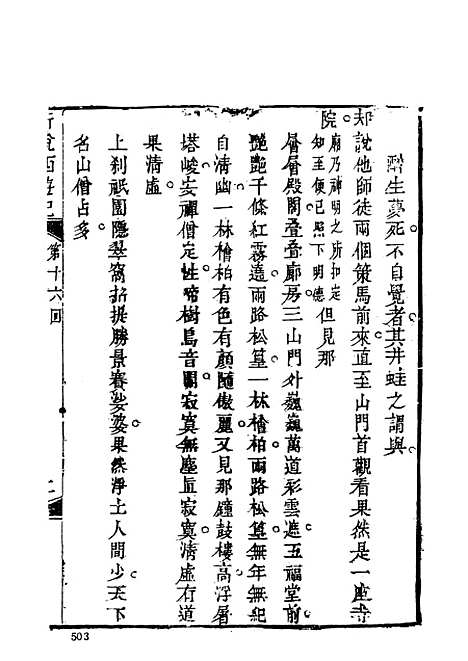 醉生夢死不自覺者其井蛙之謂與
却說他師徒兩個策馬前來直至山門首觀看果然是一座寺
院廟乃神明之所扣定知至便已照下明德但見那
層層殿閣疊疊廊房三山門外巍巍萬道彩雲遮五福堂前
艷艷千條紅霧遶兩路松篁一林檜柏兩路松篁無年無紀
自清幽一林檜柏有色有顏隨傲麗又見那鐘鼓樓高浮屠
塔峻安禪僧定性啼樹鳥音閑寂寞無塵真寂寞清虛有道
果清虛
上刹祇園隱翠窩招提勝景賽娑婆果然淨土人間少天下
名山僧占多
新說西遊記
第十六回
503